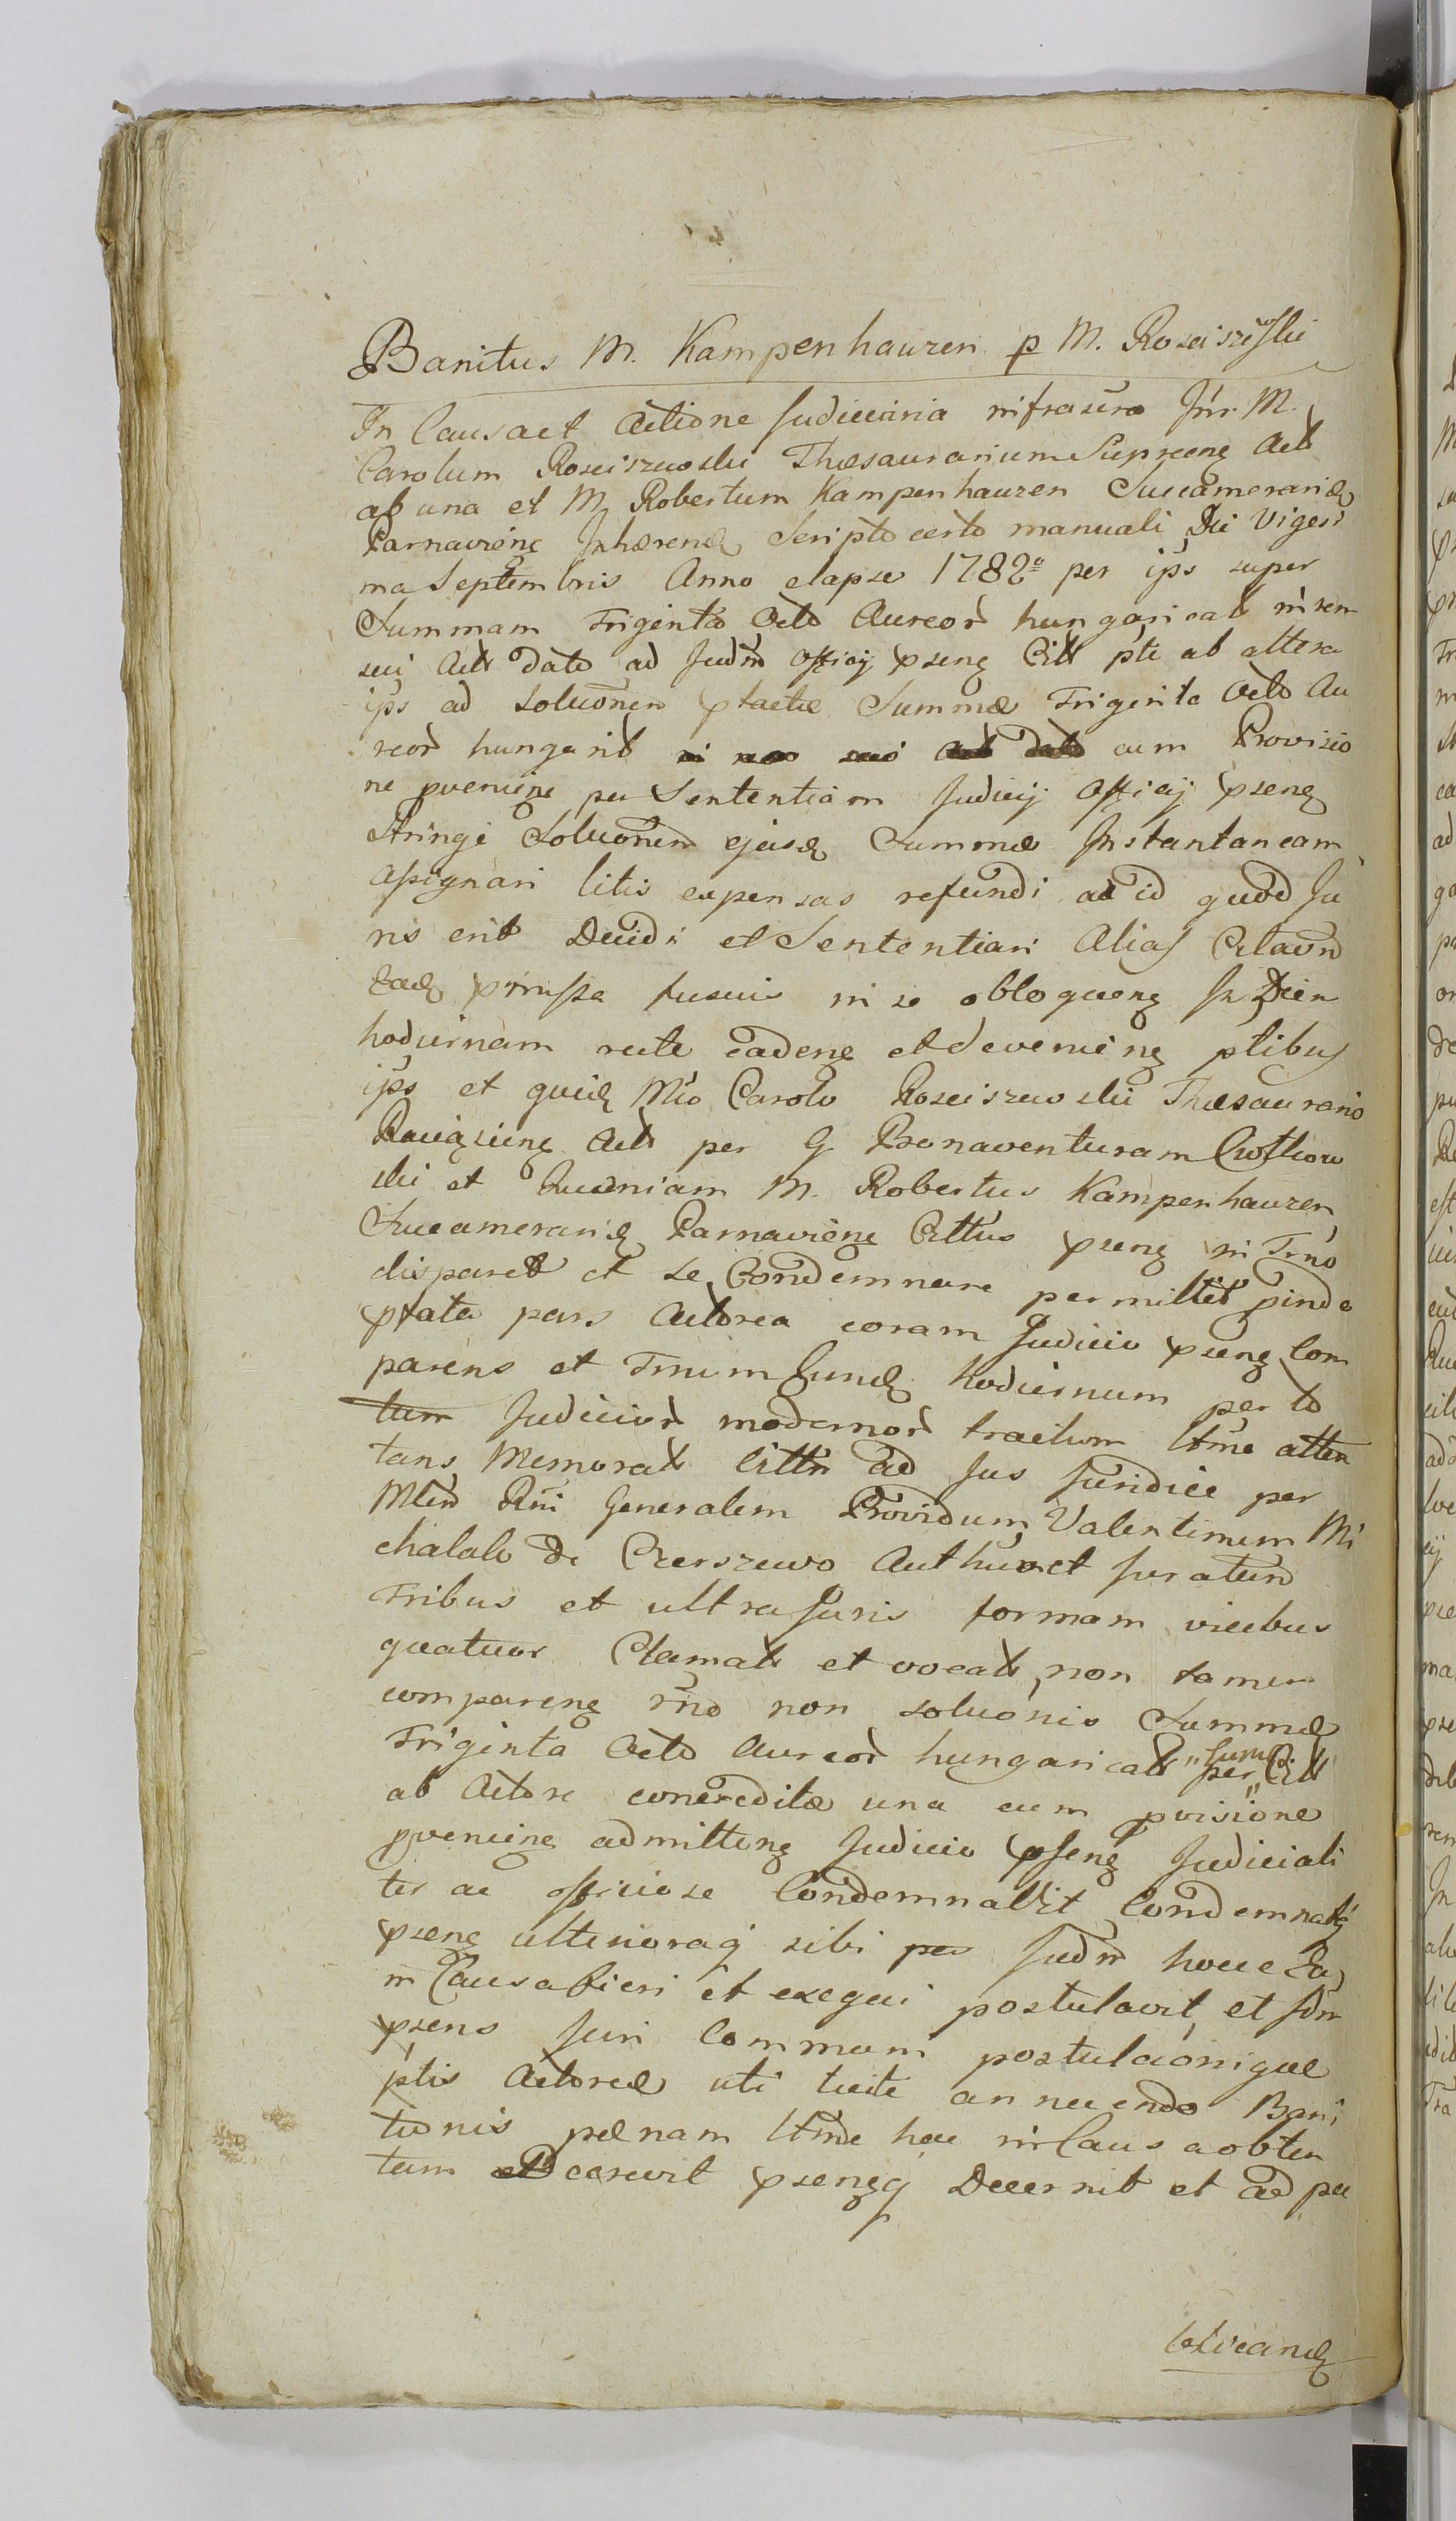 Banitus M. Kampenhauzen p M. Rosciszewski
In Causa et Actione Judiciaria infrascra Intr M.
Carolum Rosciszewski Thesaurarium Act
ab una et M Robertum Kampenhauzen Succamerarid
Parnaviens Inhaerend Scripto certo manuali Die Vigesi
ma Septembris Anno elapso 1782º per ips super
Summam Triginta Octo Aureor hungaricat in rem
sui Act dato ad Judm Officij psens Citt pte ab altera
ips ad Soluonem pfactae Summae Triginta Octo Au
reor hungarit cum Provisio
ne pveniens per Sententiam Judicij Officij psens
Stringi Soluonem ejusd Summae Instantaneam
Assignari litis expensas refundi ad id quod Ju
ris erit Decidi et Sententiari Alias Citaon
ead fusius in se obloquens In Diem
hodiernam recte cadens et deveniens ptibus
ips et quid Mco Carolo Rosciszewski Thesaurario
Act per G Bonaventuram
ski et Quoniam M. Robertus Kampenhauzen
Succamerarid Parnaviens Cittus psens in Trno
disparet et se Condemnare permittit pinde
pfata pars Actorea coram Judicio psens Com
parens et Trnum hodiernum per to
tum Judicior modernor tractum ltme atten
tans Memorat Cittm ad Jus Juridice per
Mtrm Rni Generalem Providum Valentinum Mi
chalak de Czerszewo Auth et Juratum
Tribus et ultra Juris formam vicibus
quatuor Clamat et vocat, non tamen
comparens rno non soluonis Summae
Triginta Octo Aureor hungaricat per Citt
ab Actore concreditae una cum pvisione
pveniens admittens Judicio psens Judiciali
ter ac officiose Condemnavit Condemnat
psens ulterioraq sibi per Judm hocce Ea
in Causa fieri et exequi postulavit, et Jdm
psens Juri Communi postulaonique
ptis Actoreae uti licite annuendo Bani
tionis paenam ltme hac in Causa obten
tam Decrevit psensq Decernit et ad pu
blicand